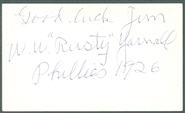 Good luck Jim
W.W. "Rusty" Yarnall
Phillies 1926